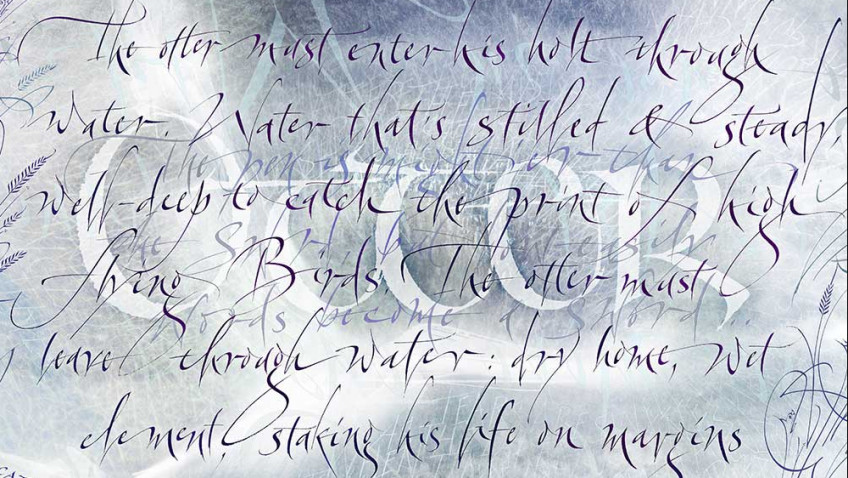 The otter must enter his holt through
Water. Water that's stilled & steady,
The pen is mightier than
well-deep to catch the print of high
OtteR
the sword but how easily
flying Birds. The otter must
words become a sword...
leave through water: dry home, wet
element, staking his life on margins